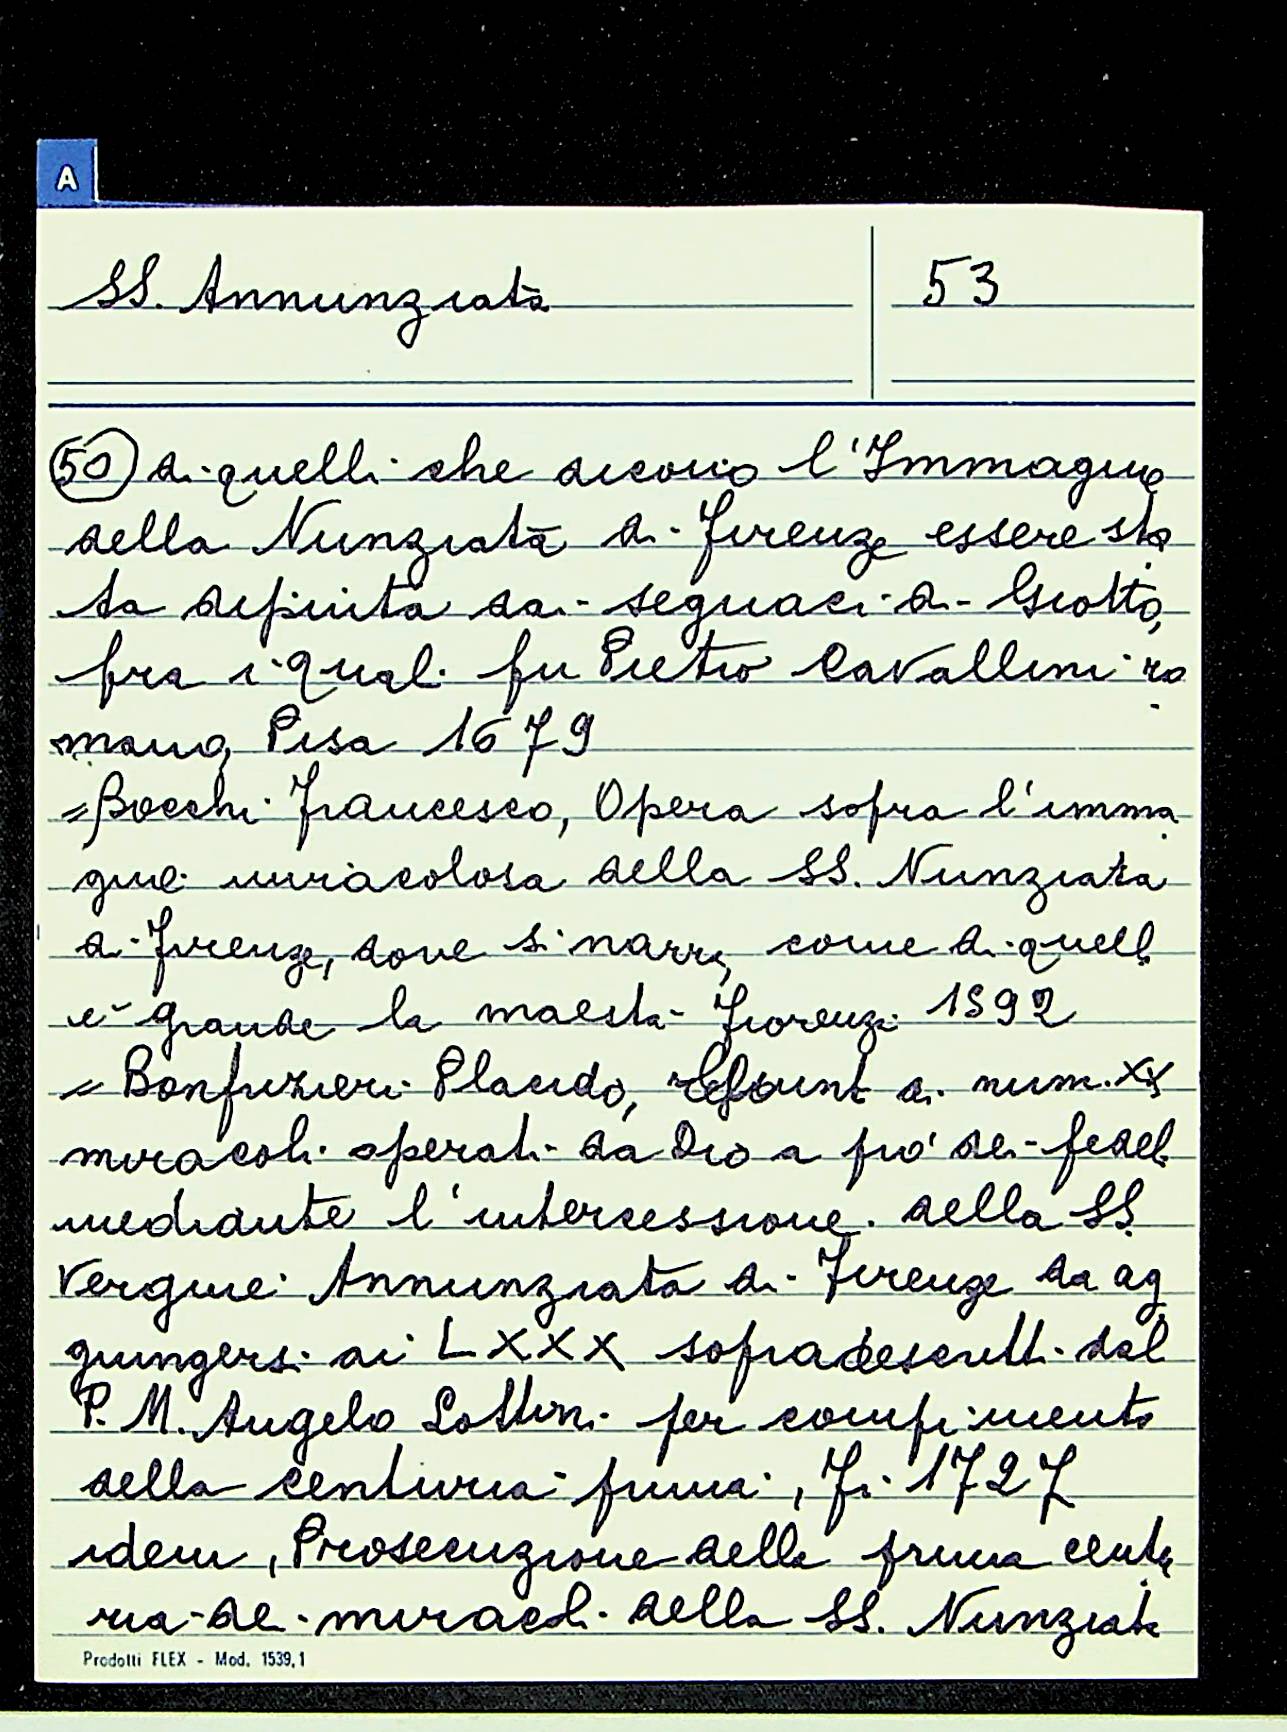 A
SS. Annunziata
53
50 di quelli che dicono l'Immagine
della Nunziata di Firenze essere sta
ta dipinta dai seguaci di Giotto,
fra i quali fu Pietro Cavallini ro
mano, Pisa 1679
= Bocchi Francesco, Opera sopra l'imma
gine miracolosa della SS. Nunziata
di Firenze, dove si narra, come di quella
è grande la maestà Fiorenza 1592
= Bonfrizieri Placido, di num. XX
miracoli operati da Dio a pro' dei fedeli
mediante l'intercessione della SS.
Vergine Annunziata di Firenze da ag
giungersi ai LXXX sopradescritti dal
P. M. Angelo Lottini per compimento
della centuria prima, Fi. 1727
idem, Prosecuzione della prima centu
ria dei miracoli della SS. Nunziata
Prodotti FLEX - Mod. 1539,1